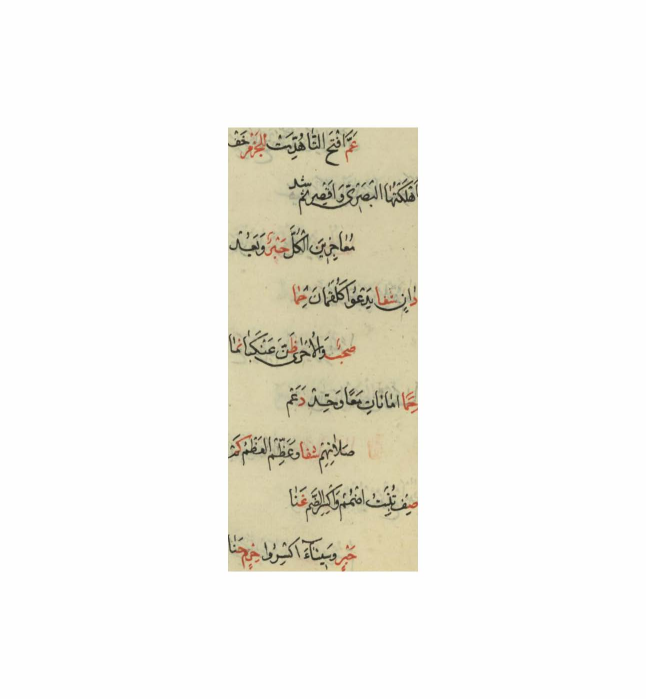 عَمَّ افْتَحِ التَّا هُدِّمَتْ لِلْحِرْمِ خَفْ
أَهْلَكْتُهَا الْبَصْرِيُّ وَاقْصُرْ ثُمَّ شُدْ
مُعَاجِزِينَ الْكُلَّ حَبْرٌ وَيَعُدْ
دَانٍ شَفَا يَدْعُوا كَلُقْمَانَ حِمَا
صَحْبٌ وَالْأُخْرَى ظَنَّ عَنْكَبَا نَمَا
حِمًا أَمَانَاتِ مَعًا وَحِّدْ دَعَمْ
صَلَاتِهِمْ شَفَا وَعَظْمَ الْعَظْمِ كَمْ
صِفْ تُنْبِتُ اضْمُمْ وَاكْسِرِ الضَّمَّ غَنَا
حَبْرٍ وَسَيْنَاءَ اكْسِرُوا حِرْمٌ حَنَا